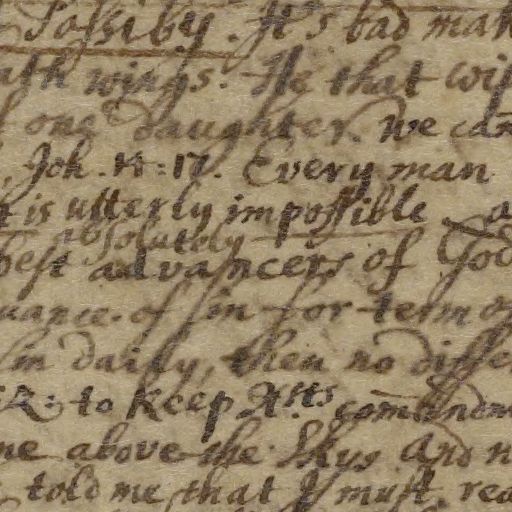 Possiby. It's bad mak
ash wings. He that wis
one daughter. We can
Joh. 14:17. Every man
t is utterly impossible a
absolutely
best advancers of God
uance. of sin for term of
sin daily, then no differ
to keep Xtts comandm
ne above the Skys and n
told me that I must rea